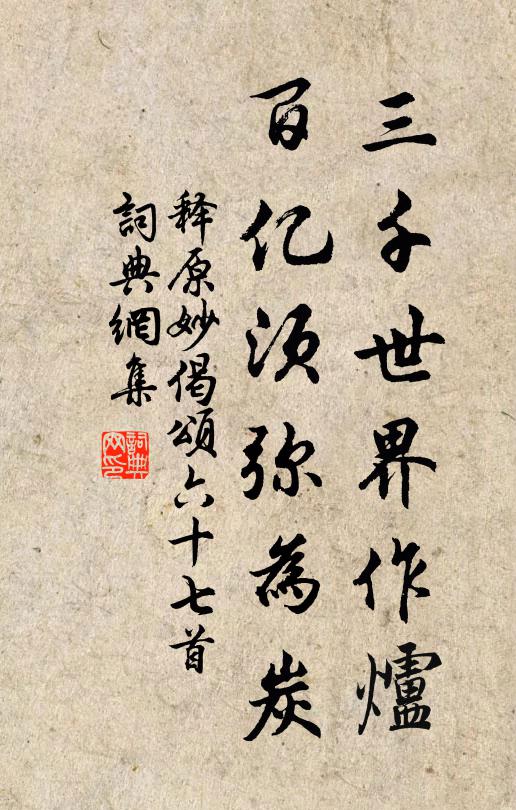 三千世界作爐
百亿须弥為炭
释原妙偈頌六十七首
詞典網集
詞典网印